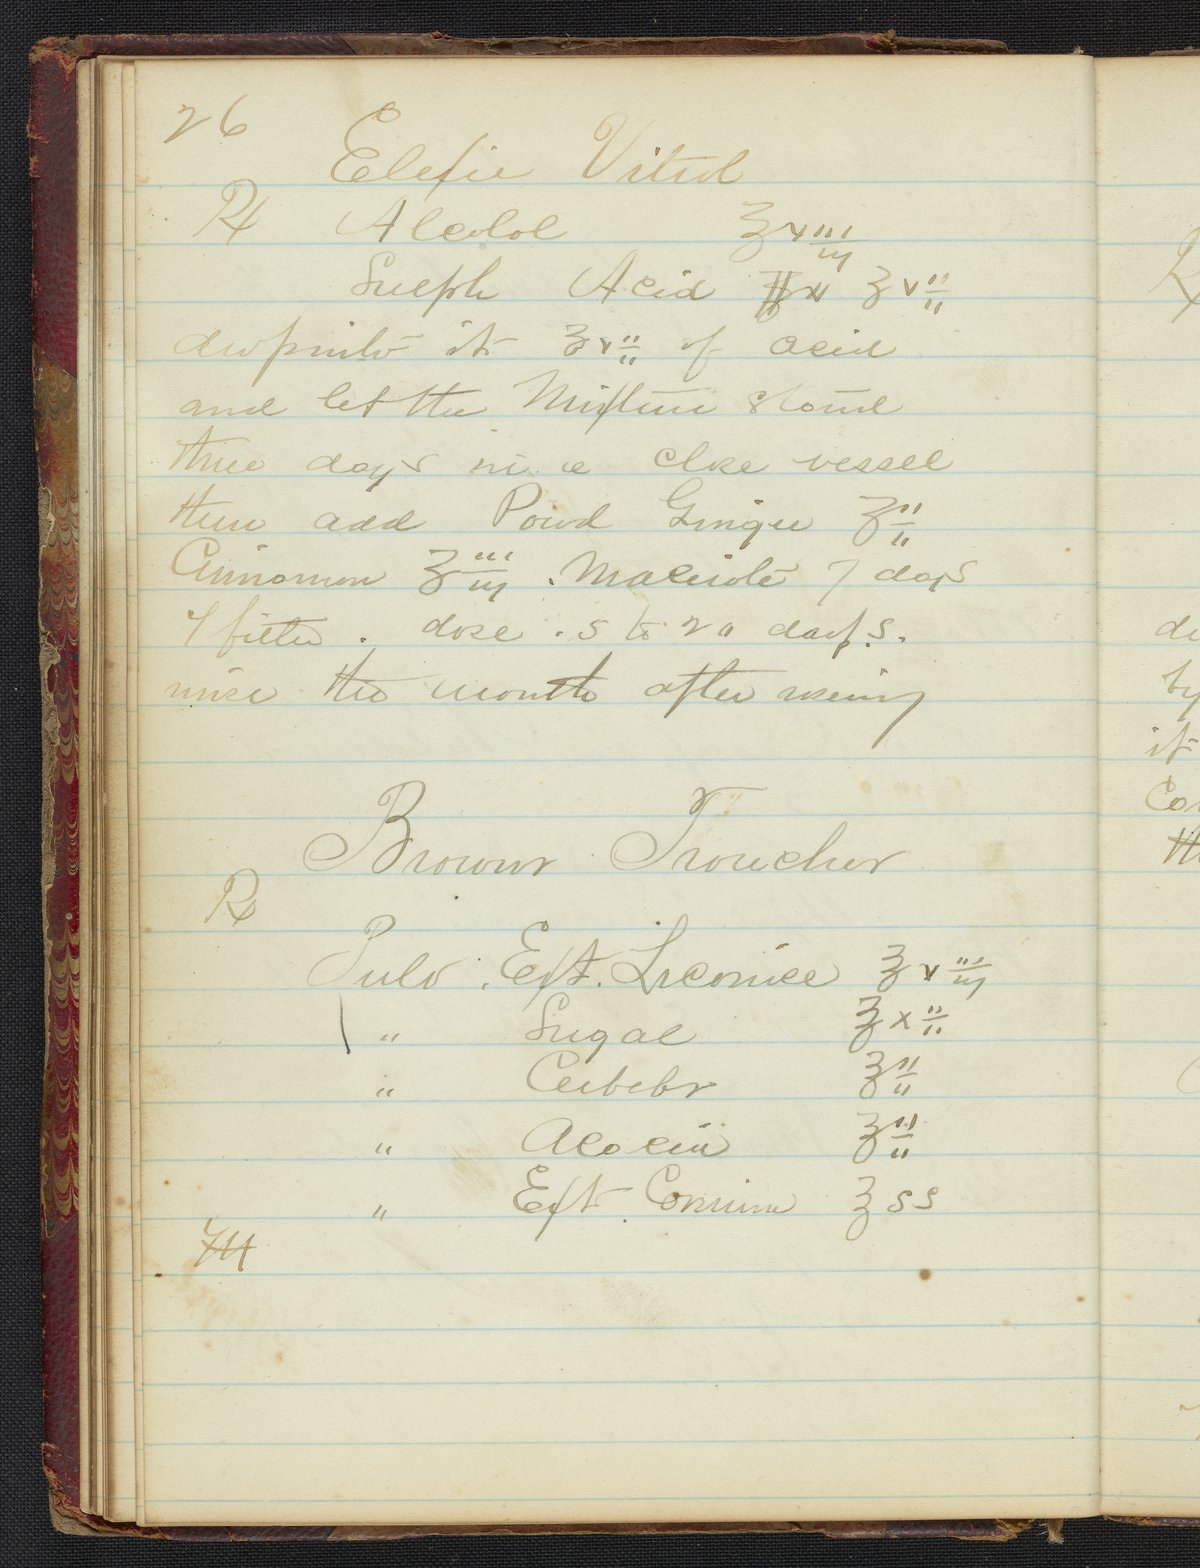 26
Elixir Vitriol
℞ Alcohol ℥xviii
Sulph Acid ℥vii
drop into it ℥vii of acid
and let the Mixture stand
three days in a close vessel
then add Powd Ginger ℥ii
Cinnamon ℥iii. Macerate 7 days
& filter. dose. 5 to 20 drops.
rinse the mouth after using
Browns Trouches
℞
Pulv. Ext. Licorice ℥viii
" Sugar ℥xii
" Cubebs ℥ii
" Acacia ℥ii
" Ext Conium ℥ss
M
de
by
it